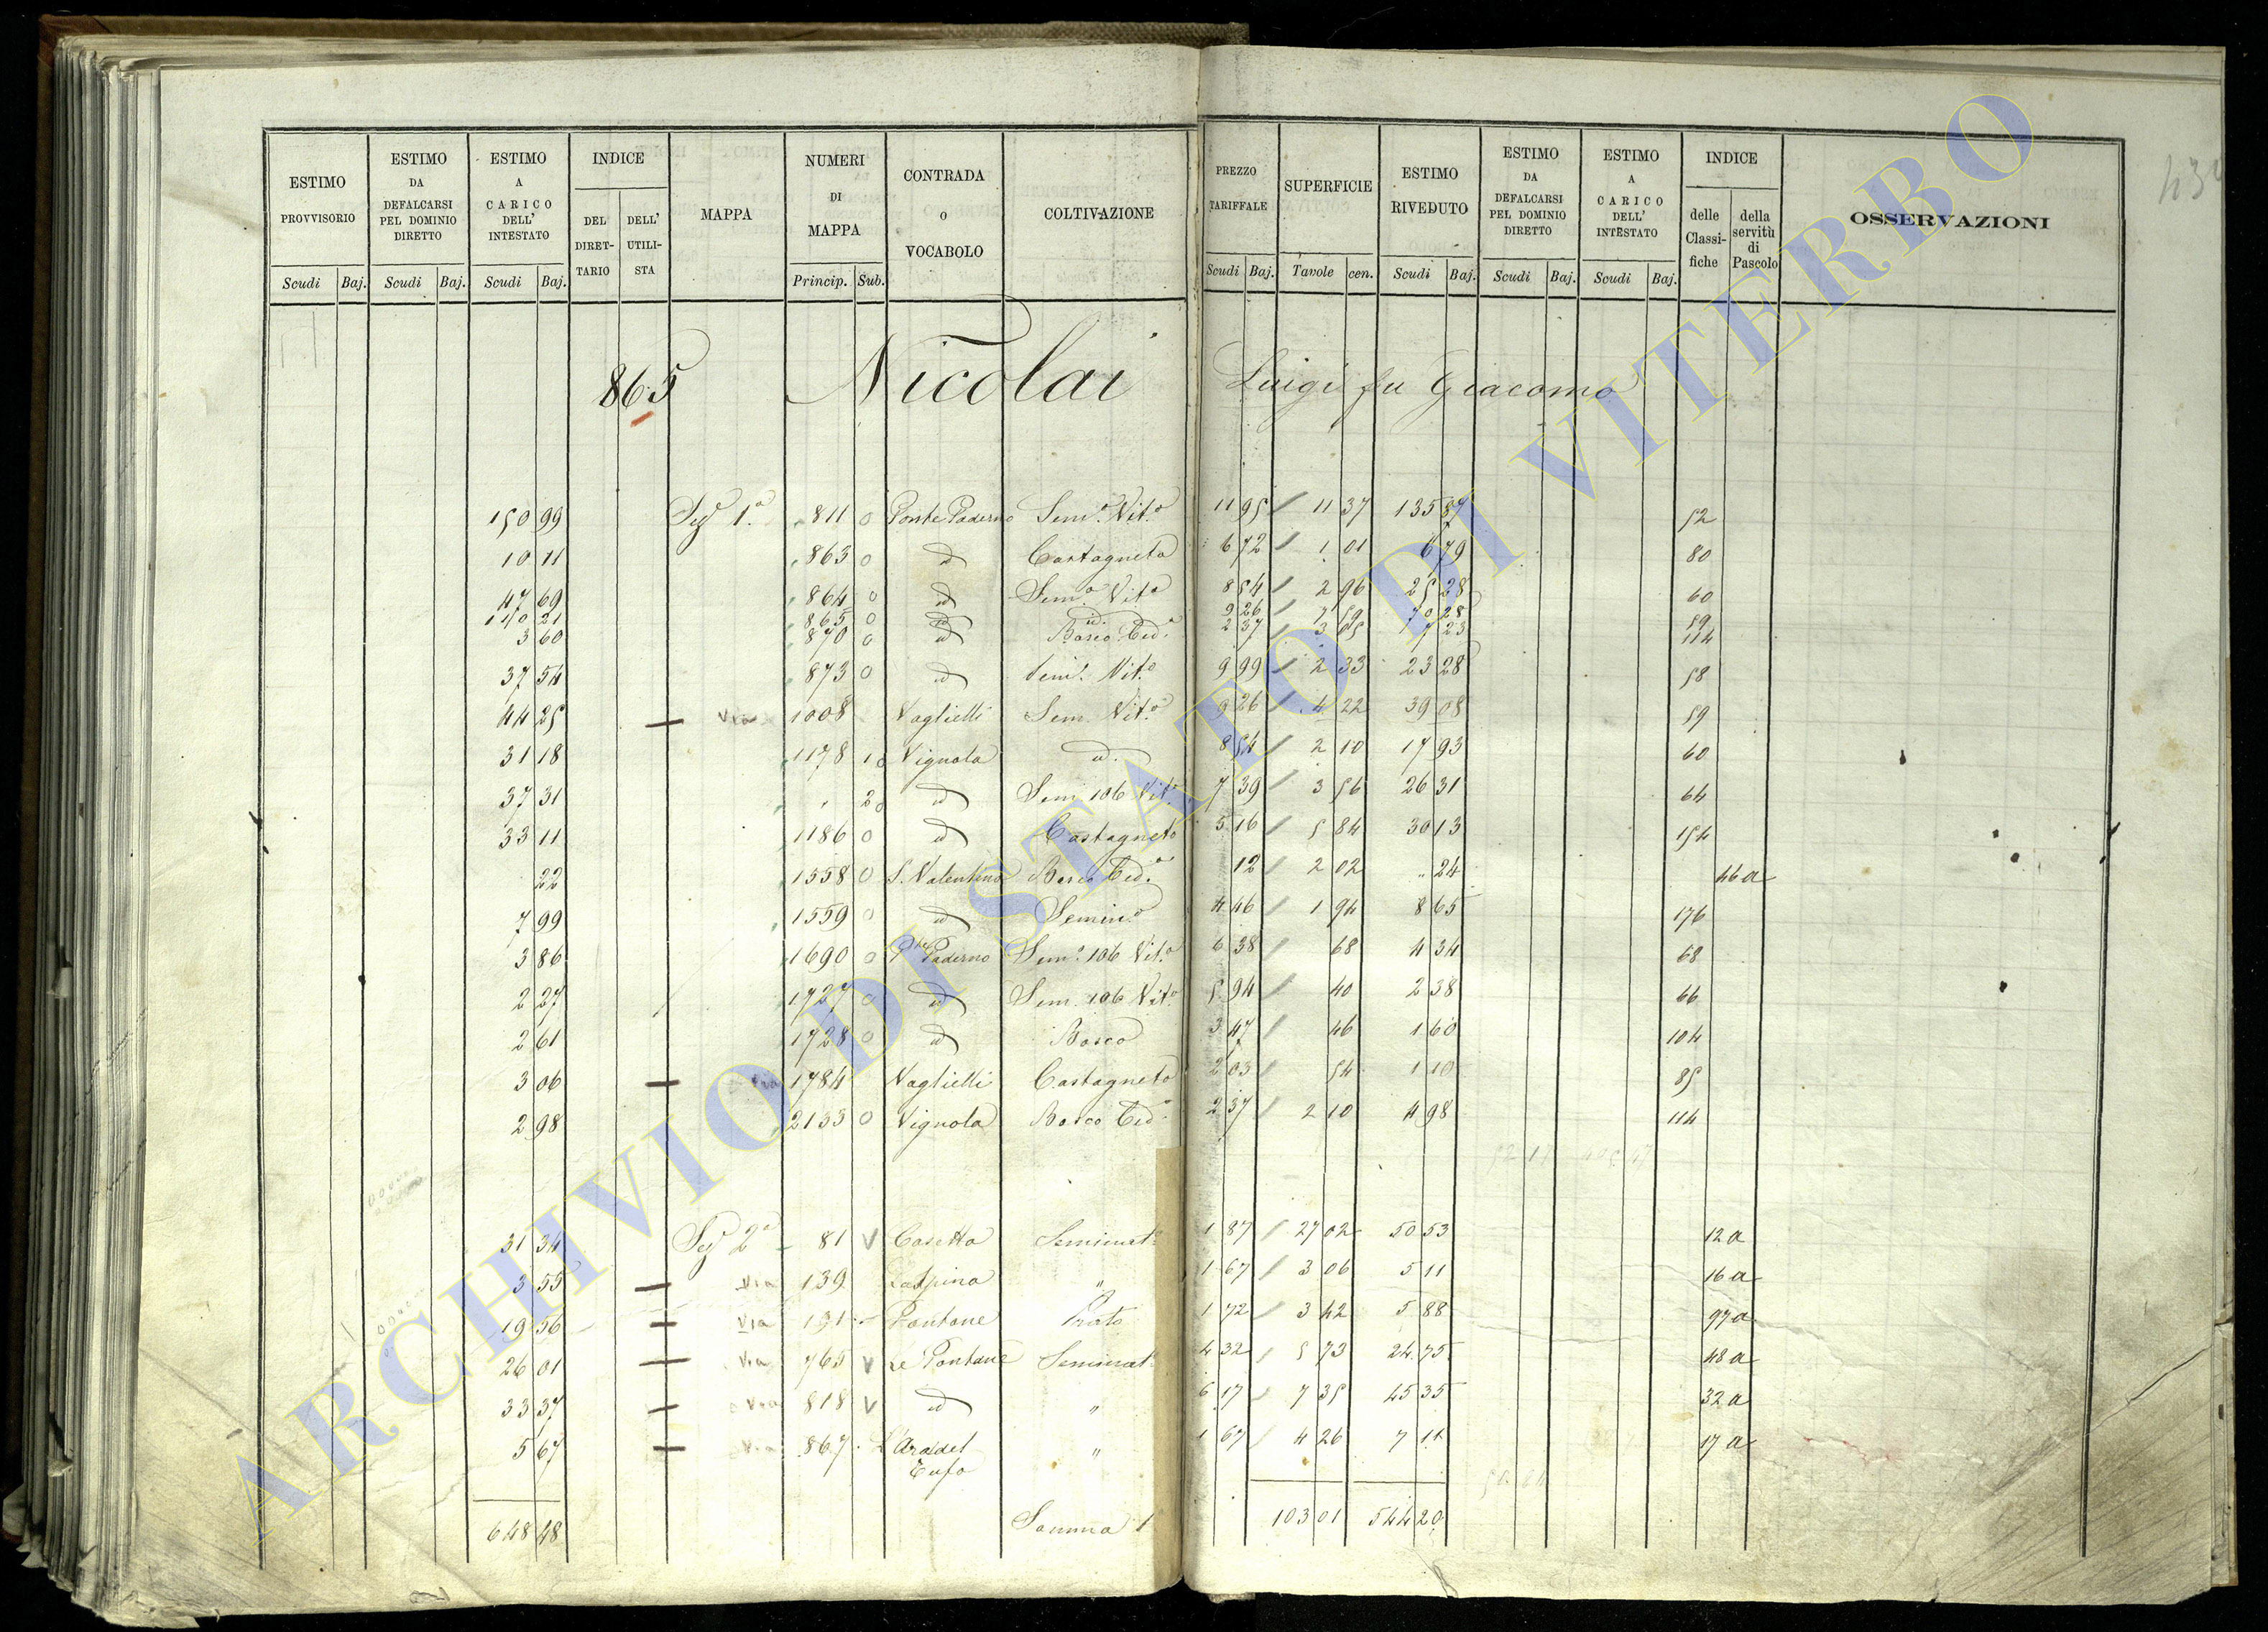 434
ESTIMO PROVVISORIO | ESTIMO DA DEFALCARSI PEL DOMINIO DIRETTO | ESTIMO A CARICO DELL' INTESTATO | INDICE | MAPPA | NUMERI DI MAPPA | CONTRADA O VOCABOLO | COLTIVAZIONE | PREZZO TARIFFALE | SUPERFICIE | ESTIMO RIVEDUTO | ESTIMO DA DEFALCARSI PEL DOMINIO DIRETTO | ESTIMO A CARICO DELL' INTESTATO | INDICE | OSSERVAZIONI
DEL DIRETTARIO | DELL' UTILISTA | delle Classifiche | della servitù di Pascolo
Scudi Baj. | Scudi Baj. | Scudi Baj. | Princip. Sub. | Scudi Baj. | Tavole cen. | Scudi Baj. | Scudi Baj. | Scudi Baj.
865 Nicolai Luigi fu Giacomo
150 99 Sez 1.a 811 0 Ponte Paderno Sem.o Vit.o 11 95 11 37 135 87 52
10 11 863 0 id Castagneto 6 72 1 01 6 79 80
47 69 864 0 id Sem.o Vit.o 8 54 2 96 25 28 60
865 0 id id. 9 26 7 59 70 28 59
3 60 870 0 id Bosco Ced.o 2 37 3 05 7 23 114
37 54 873 0 id Sem.o Vit.o 9 99 2 33 23 28 58
44 25 Via 1008 Vaglielli Sem. Vit.o 9 26 4 22 39 08 59
31 18 1178 1 0 Vignola id. 8 54 2 10 17 93 60
37 31 " 2 0 id Sem 106 Vit.o 7 39 3 56 26 31 64
33 11 1186 0 id Castagneto 5 16 5 84 30 13 154
22 1558 0 S. Valentino Bosco Ced.o 12 2 02 .. 24 46 a
7 99 1559 0 id Semin.o 4 46 1 94 8 65 176
3 86 1690 0 P.te Paderno Sem.o 106 Vit.o 6 38 68 4 34 68
2 27 1727 0 id Sem. 106 Vit.o 5 94 40 2 38 66
2 61 1728 0 id Bosco 3 47 46 1 60 104
3 06 Via 1784 Vaglielli Castagneto 2 03 54 1 10 85
2 98 2133 0 Vignola Bosco Ced.o 2 37 2 10 4 98 114
31 34 Sez 2.a 81 V Casetta Seminat.o 1 87 27 02 50 53 12 a
3 55 Via 139 La Spina " 1 67 3 06 5 11 16 a
19 56 Via 191 Pantane Prato 1 72 3 42 5 88 97 a
26 01 Via 765 V Le Pantane Seminat.o 4 32 5 73 24 75 48 a
33 37 Via 818 V id " 6 17 7 35 45 35 32 a
5 67 Via 867 L'Ara del " 1 67 4 26 7 11 17 a
Tufo
648 48 Somma 1 103 01 544 20
ARCHIVIO DI STATO DI VITERBO